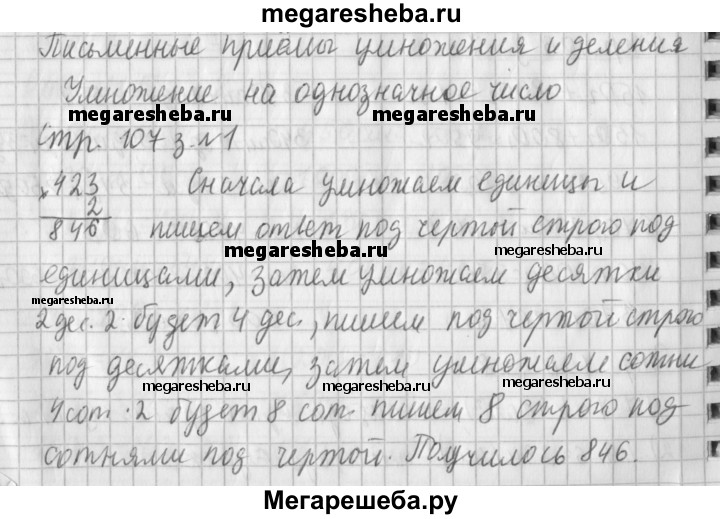 megaresheba.ru
Письменные приёмы умножения и деления
Умножение на однозначное число
megaresheba.ru megaresheba.ru
Стр. 107 з. №1
×423 Сначала умножаем единицы и
2
846 пишем ответ под чертой строго под
megaresheba.ru megaresheba.ru
единицами, затем умножаем десятки
megaresheba.ru
2 дес. 2 будет 4 дес., пишем под чертой строго
под десятками, затем умножаем сотни
megaresheba.ru megaresheba.ru
4 сот · 2 будет 8 сот. пишем 8 строго под
сотнями под чертой. Получилось 846.
Мегарешеба.ру